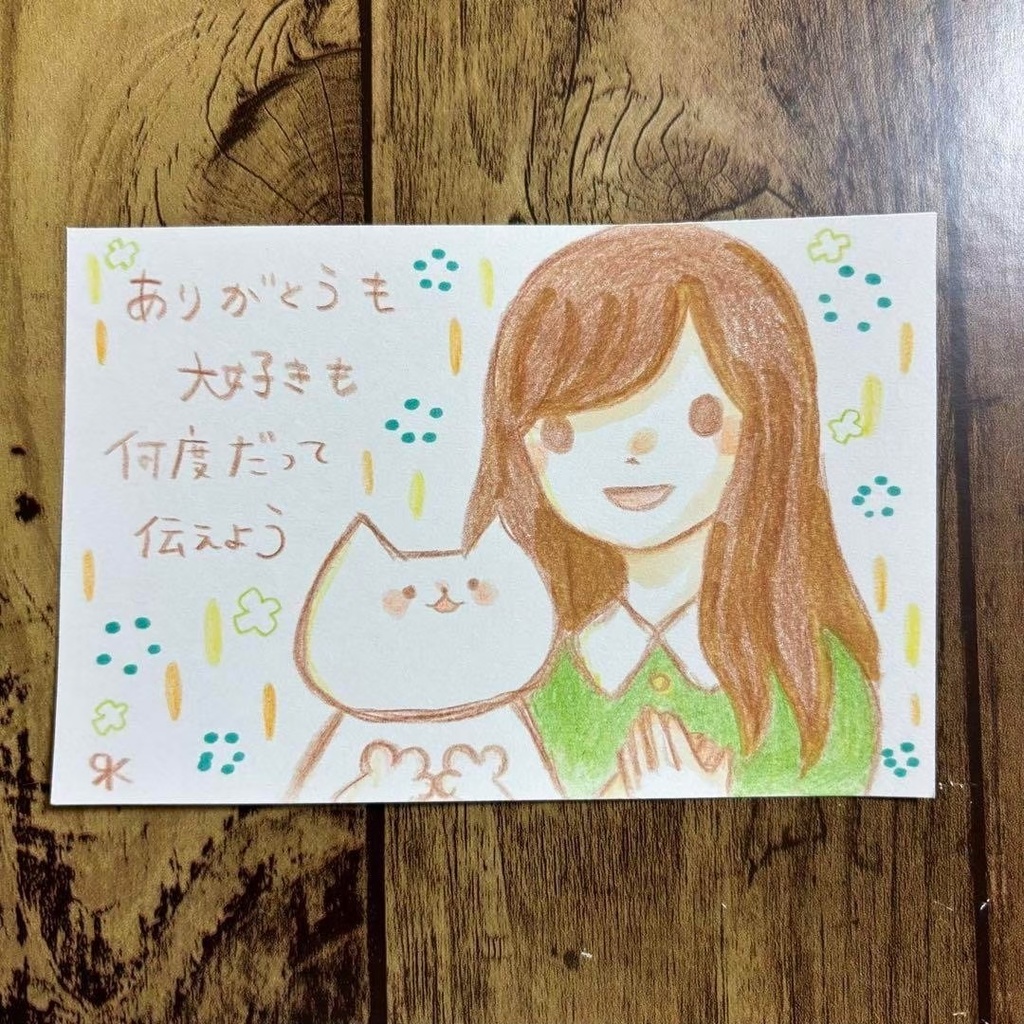 ありがとうも
大好きも
何度だって
伝えよう